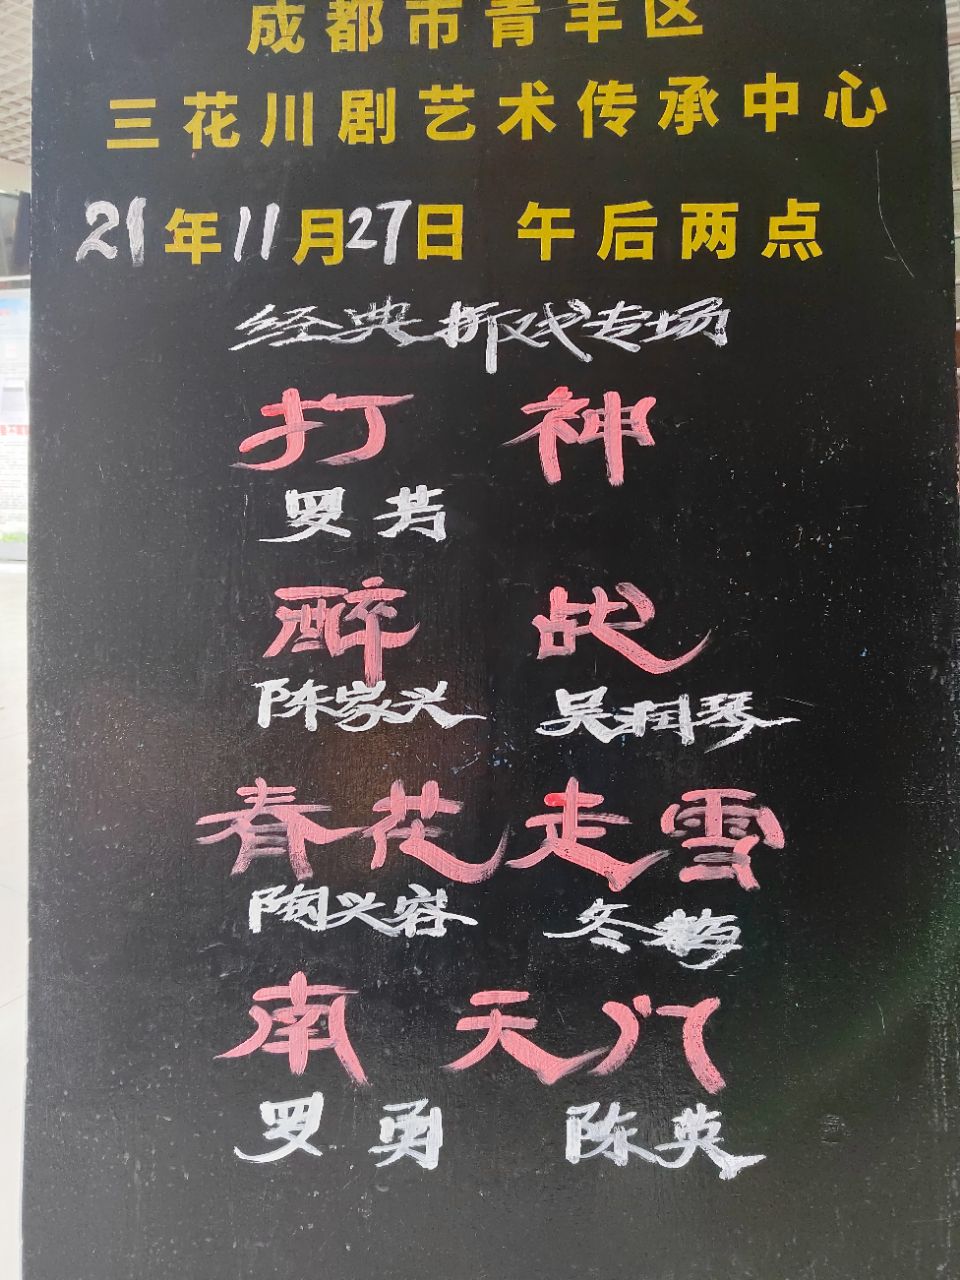 成都市青羊区
三花川剧艺术传承中心
21年11月27日 午后两点
经典折戏专场
打 神
罗 芳
醉 战
陈家兴 吴润琴
春花走雪
陶兴容 冬梅
南天门
罗 勇 陈英